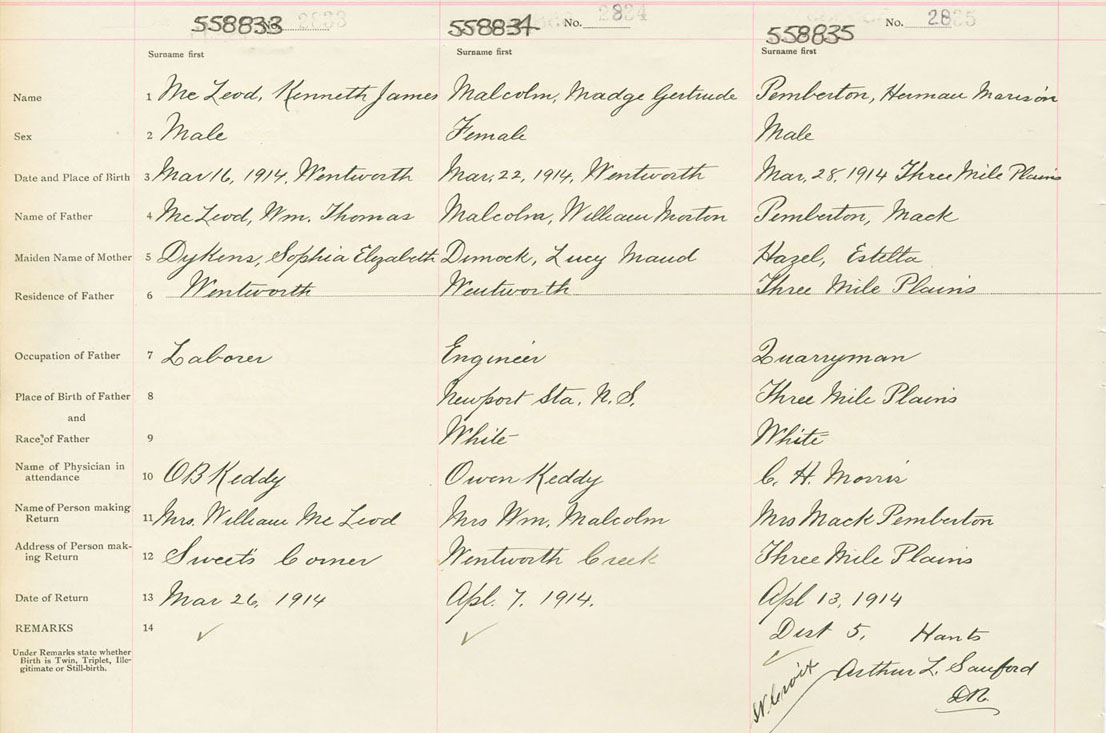 558833 No. 2833 558834 No. 2834 558835 No. 2835
Surname first Surname first Surname first
Name 1 Mc Leod, Kenneth James Malcolm, Madge Gertrude Pemberton, Herman Marison
Sex 2 Male Female Male
Date and Place of Birth 3 Mar 16, 1914, Wentworth Mar, 22, 1914, Wentworth Mar, 28, 1914 Three Mile Plains
Name of Father 4 Mc Leod, Wm. Thomas Malcolm, William Morton Pemberton, Mack
Maiden Name of Mother 5 Dykens, Sophia Elizabeth Dimock, Lucy Maud Hazel, Estella
Residence of Father 6 Wentworth Wentworth Three Mile Plains
Occupation of Father 7 Laborer Engineer Quarryman
Place of Birth of Father 8 Newport Sta. N.S. Three Mile Plains
and
Race of Father 9 White White
Name of Physician in
attendance 10 OB Keddy Owen Keddy C. H. Morris
Name of Person making
Return 11 Mrs. William Mc Leod Mrs Wm, Malcolm Mrs Mack Pemberton
Address of Person mak-
ing Return 12 Sweet's Corner Wentworth Creek Three Mile Plains
Date of Return 13 Mar 26, 1914 Apl. 7, 1914. Apl 13, 1914
REMARKS 14 ✓ ✓ Dist 5, Hants
Under Remarks state whether
Birth is Twin, Triplet, Ille-
gitimate or Still-birth.
✓ Arthur L. Sanford
D.R.
St. Croix